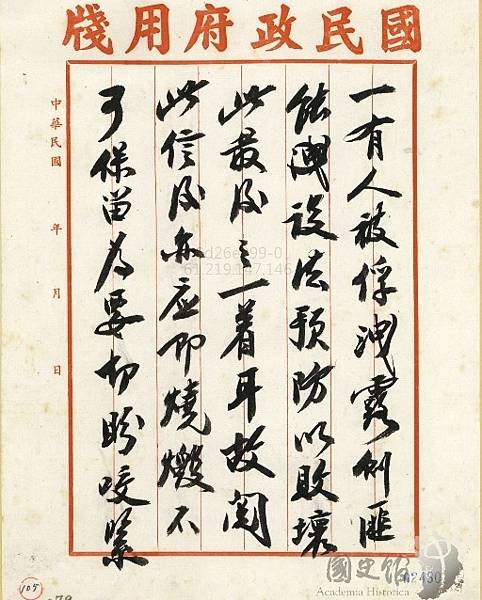 國民政府用牋
一有人被俘洩露則匪
能設法預防以敗壞
此最後之一着耳故閱
此信後亦應即燒燬不
可保留為要切盼咬緊
中華民國 年 月 日
105
國史館
Academia Historica